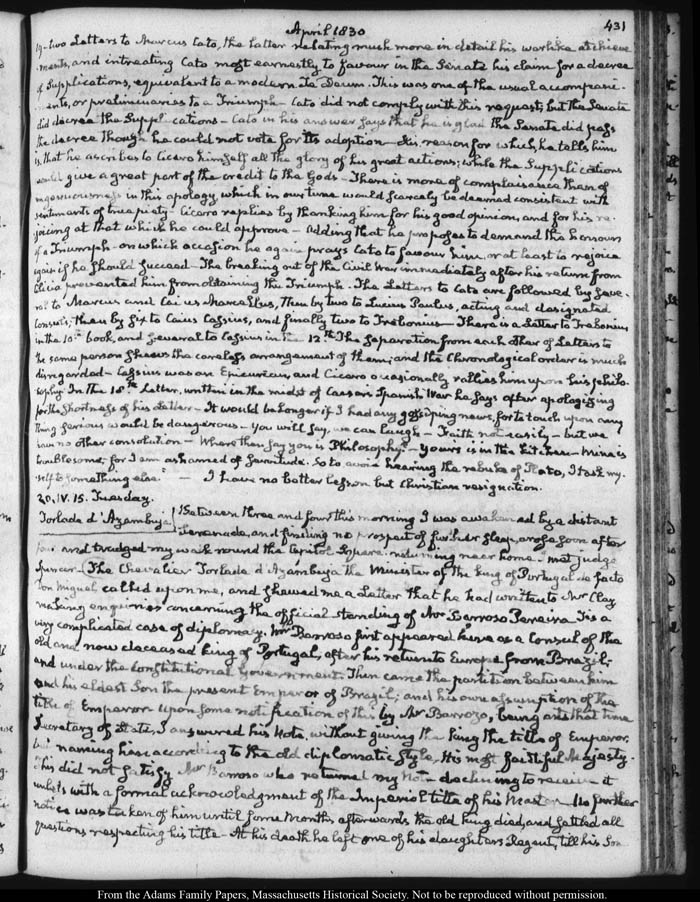 April 1830
431
19. two Letters to Marcus Cato, the latter relating much more in detail his warlike atchieve
ments, and intreating Cato most earnestly to favour in the Senate his claim for a decree
of Supplications, equivalent to a modern Te Deum. This was one of the usual accompani-
ments, or preliminaries to a Triumph. Cato did not comply with this request, but the Senate
did decree the Supplications - Cato in his answer says that he is glad the Senate did pass
the decree though he could not vote for its adoption. His reason for which, he tells him
is that he ascribes to Cicero himself all the glory of his great actions; while the Supplications
would give a great part of the credit to the Gods - There is more of complaisance than of
ingenuousness in this apology, which in our time would scarcely be deemed consistent with
sentiments of true piety - Cicero replies by thanking him for his good opinion, and for his re-
joicing at that which he could approve - Adding that he proposes to demand the honours
of a Triumph - on which occasion he again prays Cato to favour him, or at least to rejoice
again if he should succeed - The breaking out of the Civil War immediately after his return from
Cilicia prevented him from obtaining the Triumph. The Letters to Cato are followed by seve-
ral to Marcus and Caius Marcellus, then by two to Lucius Paulus, acting and designated
Consuls; then by six to Caius Cassius, and finally two to Trebonius - There is a Letter to Trebonius
in the 10th book, and several to Cassius in the 12th The separation from each other of Letters to
the same person shews the careless arrangement of them; and the Chronological order is much
disregarded - Cassius was an Epicurean, and Cicero occasionally rallies him upon his philo-
sophy. In the 18th Letter, written in the midst of Caesar's Spanish War he says after apologizing
for the shortness of his Letter - It would be longer if I had any gossiping news, for to touch upon any
thing serious would be dangerous - You will say, we can laugh - Faith not easily - but we
have no other consolation - Where then say you is Philosophy? - Yours is in the kitchen - Mine is
troublesome, for I am ashamed of servitude. So to avoid hearing the rebuke of Plato, I task my-
self to something else." - I have no better lesson but Christian resignation.
20. IV. 15. Tuesday.
Torlade d'Azambuja Between three and four this morning I was awakened by a distant
Serenade, and finding no prospect of further sleep, arose soon after
four and trudged my walk round the Capitol Square. returning near home - met judge
Spencer - The Chevalier Torlade d'Azambuja the Minister of the king of Portugal de facto
Don Miguel called upon me, and shewed me a Letter that he had written to Mr Clay
making enquiries concerning the official standing of Mr Barrozo Pereira. It is a
very complicated case of diplomacy. Mr Barrozo first appeared here as a Consul of the
old and now deceased king of Portugal, after his return to Europe from Brazil;
and under the Constitutional Government. Then came the partition between him
and his eldest Son the present Emperor of Brazil; and his own assumption of the
title of Emperor. Upon some notification of this by Mr Barrozo, being at that time
Secretary of State, I answered his Note, without giving the king the title of Emperor,
but naming him according to the old diplomatic style, His most faithful Majesty.
This did not satisfy Mr Barrozo who returned my Note declining to receive it
unless with a formal acknowledgment of the Imperial title of his Master. No further
notice was taken of him until some Months afterwards the old king died, and settled all
questions respecting his title - At his death he left one of his daughters Regent, till his Son
From the Adams Family Papers, Massachusetts Historical Society. Not to be reproduced without permission.